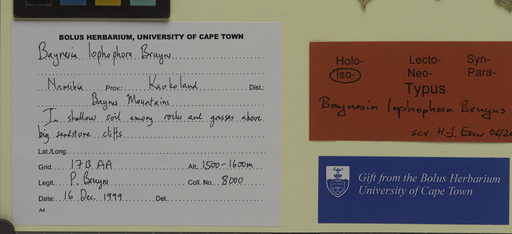 BOLUS HERBARIUM, UNIVERSITY OF CAPE TOWN
Baynesia lophophora Bruyns
Namibia Prov.: Kaokoland Dist.:
Baynes Mountains
In shallow soil among rocks and grasses above
big sandstone cliffs
Lat./Long.
Grid. 17B AA Alt. 1500-1600m
Legit. P. Bruyns Coll. No. 8000
Date: 16 Dec. 1999 Det.
A4
Holo- Lecto- Syn-
Iso- Neo- Para-
Typus
Baynesia lophophora Bruyns
scr. H.J.
Gift from the Bolus Herbarium
University of Cape Town